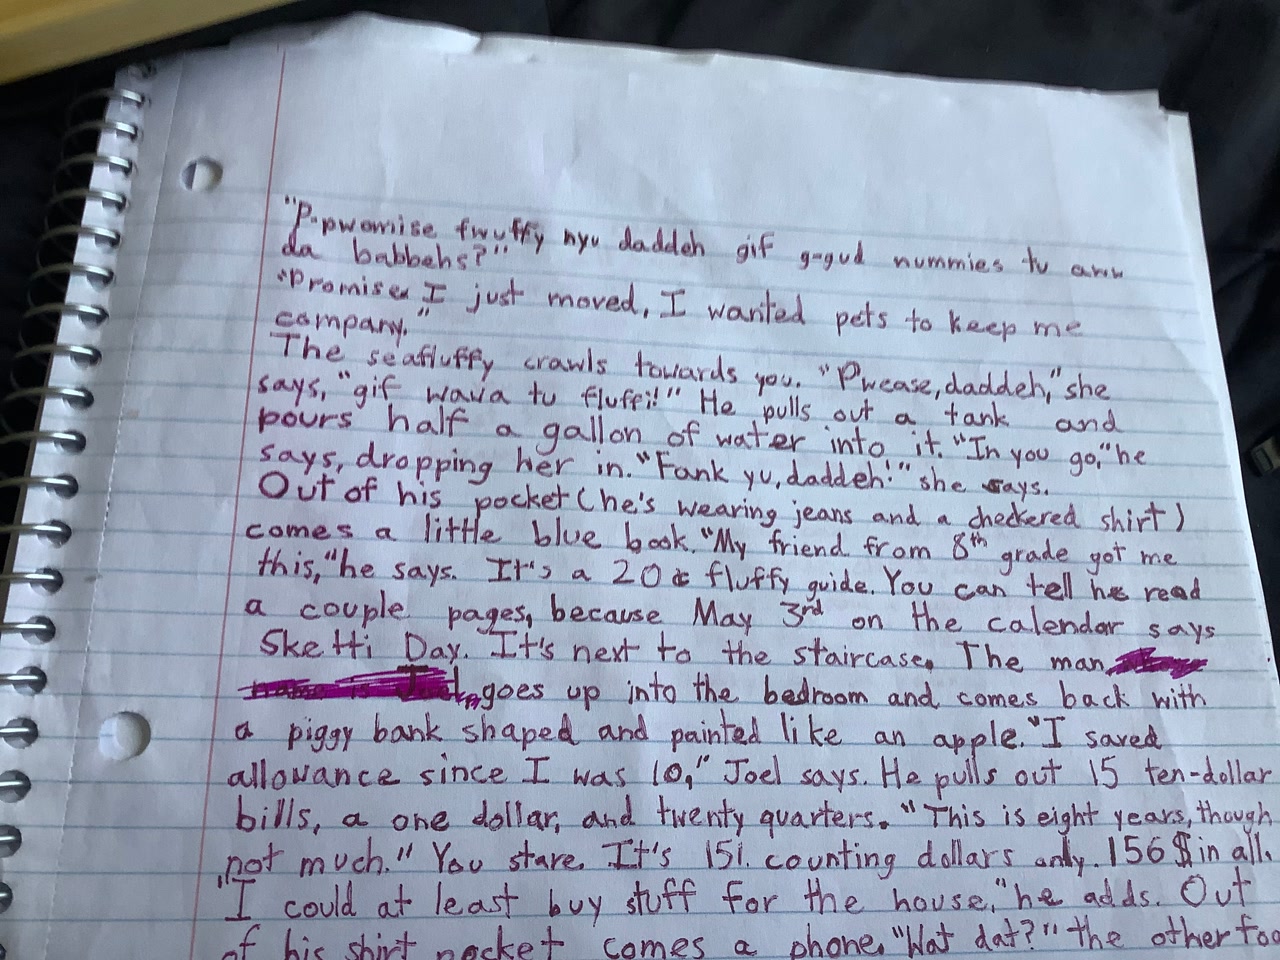 "P-pwomise fwuffy nyu daddeh gif g-gud nummies tu aww
da babbehs?"
"Promise. I just moved, I wanted pets to keep me
company."
The seafluffy crawls towards you. "Pwease, daddeh," she
says, "gif wawa tu fluffi!" He pulls out a tank and
pours half a gallon of water into it. "In you go," he
says, dropping her in. "Fank yu, daddeh!" she says.
Out of his pocket (he's wearing jeans and a checkered shirt)
comes a little blue book. "My friend from 8th grade got me
this," he says. It's a 20¢ fluffy guide. You can tell he read
a couple pages, because May 3rd on the calendar says
Sketti Day. It's next to the staircase. The man
goes up into the bedroom and comes back with
a piggy bank shaped and painted like an apple. "I saved
allowance since I was 10," Joel says. He pulls out 15 ten-dollar
bills, a one dollar, and twenty quarters. "This is eight years, though
not much." You stare. It's 151. counting dollars only. 156$ in all.
"I could at least buy stuff for the house," he adds. Out
of his shirt pocket comes a phone. "Wat dat?" the other